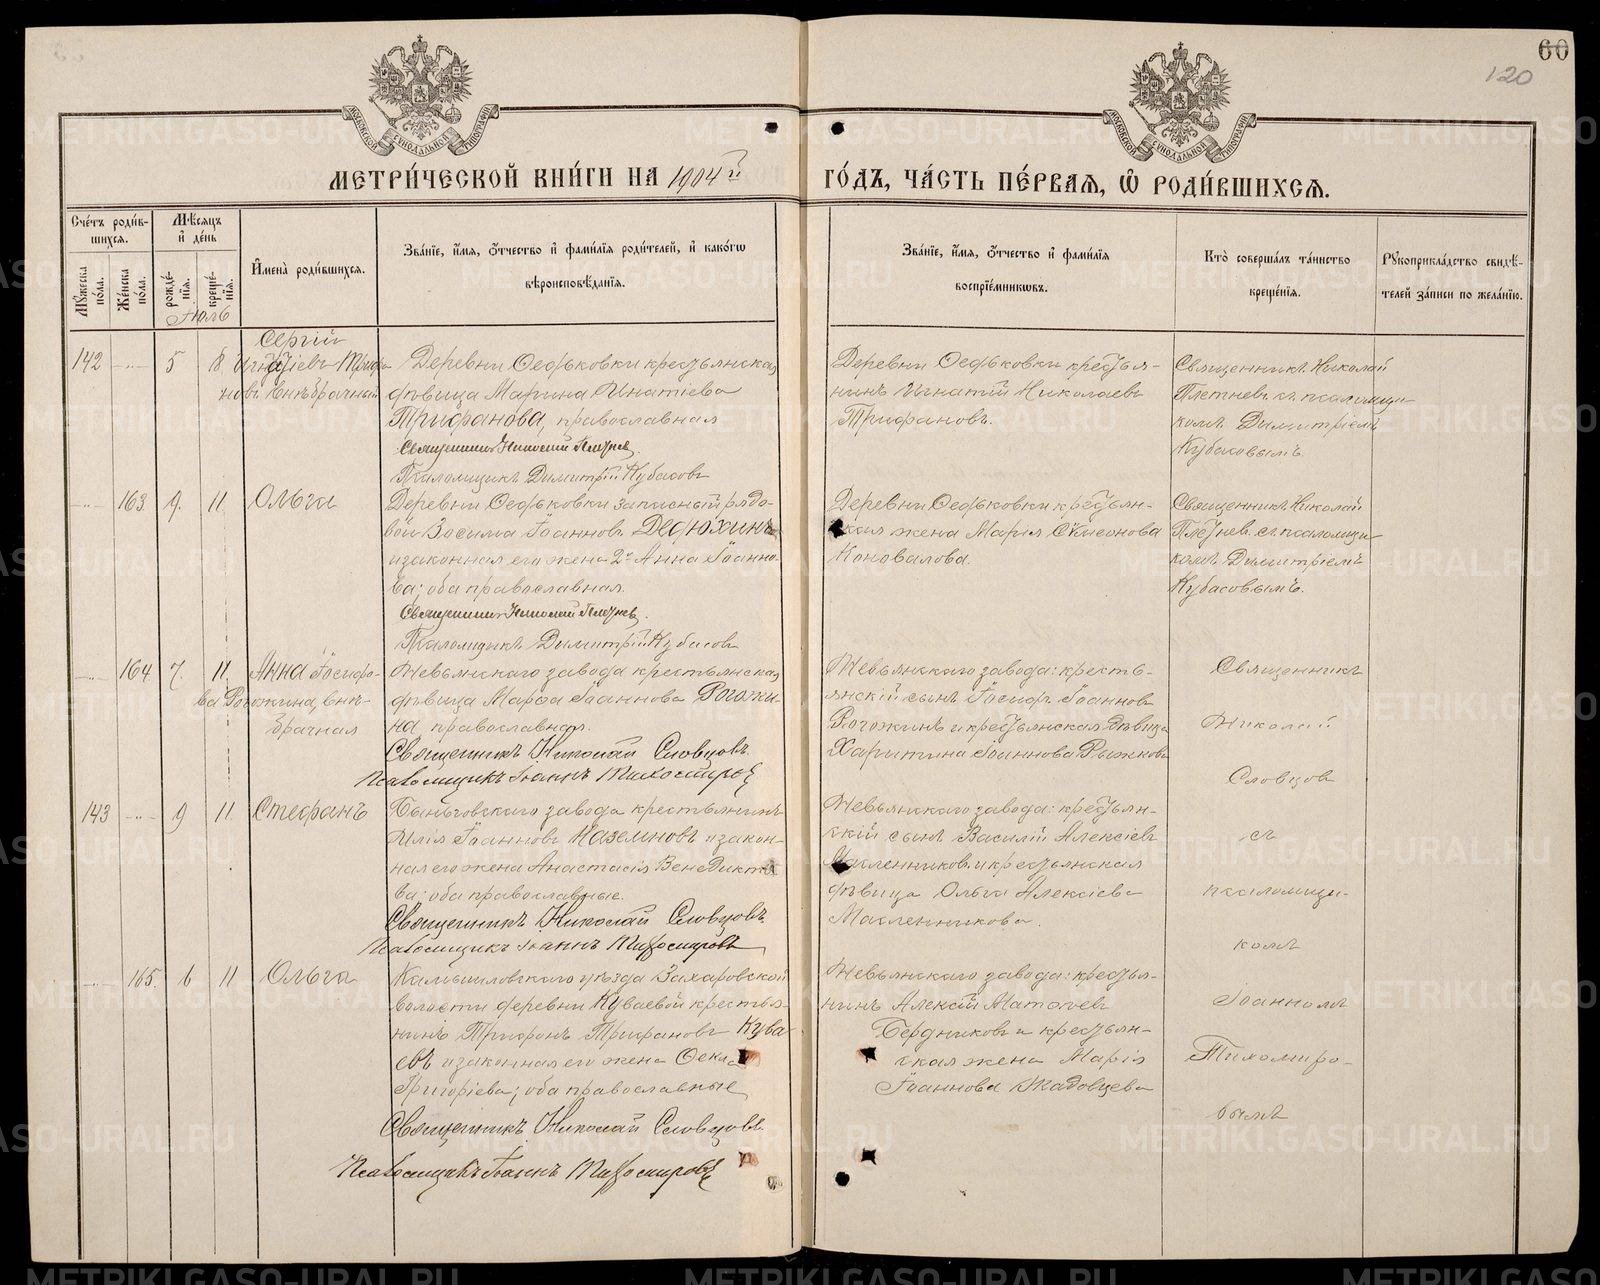 60
120
МОСКОВСКОЙ СѴНОДАЛЬНОЙ ТИПОГРАФІИ
МОСКОВСКОЙ СѴНОДАЛЬНОЙ ТИПОГРАФІИ
МЕТРИ́ЧЕСКОЙ КНИ́ГИ НА 1904й
ГО́ДЪ, ЧА́СТЬ ПЕ́РВАѦ, Ѡ҆ РОДИ́ВШИХСѦ.
Сче́тъ роди́в-
шихся.
Мѣ́сяцъ
и҆ де́нь
Мꙋ́жеска по́ла.
Же́нска по́ла.
рожде́-нїя.
креще́-нїя.
И҆мена̀ роди́вшихся.
Зва́нїе, и҆́мя, ѻ҆́тчество и҆ фами́лїя роди́телей, и҆ како́гѡ
вѣроисповѣ́данїя.
Зва́нїе, и҆́мя, ѻ҆́тчество и҆ фами́лїя
воспрїе́мниковъ.
Кто̀ соверша́лъ та́инство
креще́нїя.
Рꙋкоприкла́дство свидѣ́-
телей за́писи по жела́нїю.
Іюль
142 5 8
Сергій
Игнатіевъ Трифа
новъ внѣбрачный
Деревни Ѳедьковки крестьянская
дѣвица Марина Игнатіева
Трифанова, православная
Священникъ Николай Плетнев.
Псаломщикъ Димитрій Кубасовъ
Деревни Ѳедьковки крестья-
нинъ Игнатій Николаевъ
Трифановъ.
Священникъ Николай
Плетневъ съ псаломщи-
комъ Димитріемъ
Кубасовымъ.
163 9. 11
Ольга
Деревни Ѳедьковки запасный рядо-
вой Зосима Іоанновъ Дедюхинъ
и законная его жена 2я Анна Іоанно-
ва; оба православная.
Священникъ Николай Плетнев.
Псаломщикъ Димитрій Кубасовъ
Деревни Ѳедьковки крестьян-
ская жена Марія Сѵмеонова
Коновалова.
Священникъ Николай
Плетнев. съ псаломщи-
комъ Димитріемъ
Кубасовымъ.
164 7. 11.
Анна Іосифо-
ва Рогожина, внѣ-
брачная
Невьянскаго завода крестьянская
дѣвица Марѳа Іоаннова Рогожи-
на православная.
Священникъ Николай Словцовъ.
Псаломщикъ Іоаннъ Тихомировъ
Невьянскаго завода: кресть-
янскій сынъ Іосифъ Іоанновъ
Рогожинъ и крестьянская дѣвица
Харитина Іоаннова Рыжкова
Священникъ
Николай
Словцов
съ
псаломщи-
комъ
Іоанномъ
Тихомиро-
вымъ
143 9 11
Стефанъ
Быньговскаго завода крестьянинъ
Илія Іоанновъ Наземновъ и закон-
ная его жена Анастасія Венедикто
ва; оба православные.
Священникъ Николай Словцовъ.
Псаломщикъ Іоаннъ Тихомировъ
Невьянскаго завода: крестьян-
скій сынъ Василій Алексіевъ
Масленниковъ и крестьянская
дѣвица Ольга Алексіева
Масленникова.
165. 6 11
Ольга
Камышловскаго уѣзда Захаровской
волости деревни Куваевой крестья-
нинъ Трифонъ Трифановъ Кува-
евъ и законная его жена Ѳекла
Григоріева; оба православные
Священникъ Николай Словцовъ.
Псаломщикъ Іоаннъ Тихомировъ
Невьянскаго завода: крестья-
нинъ Алексій Матѳіевъ
Бердниковъ и крестьян-
ская жена Марія
Іоаннова Жадовцева